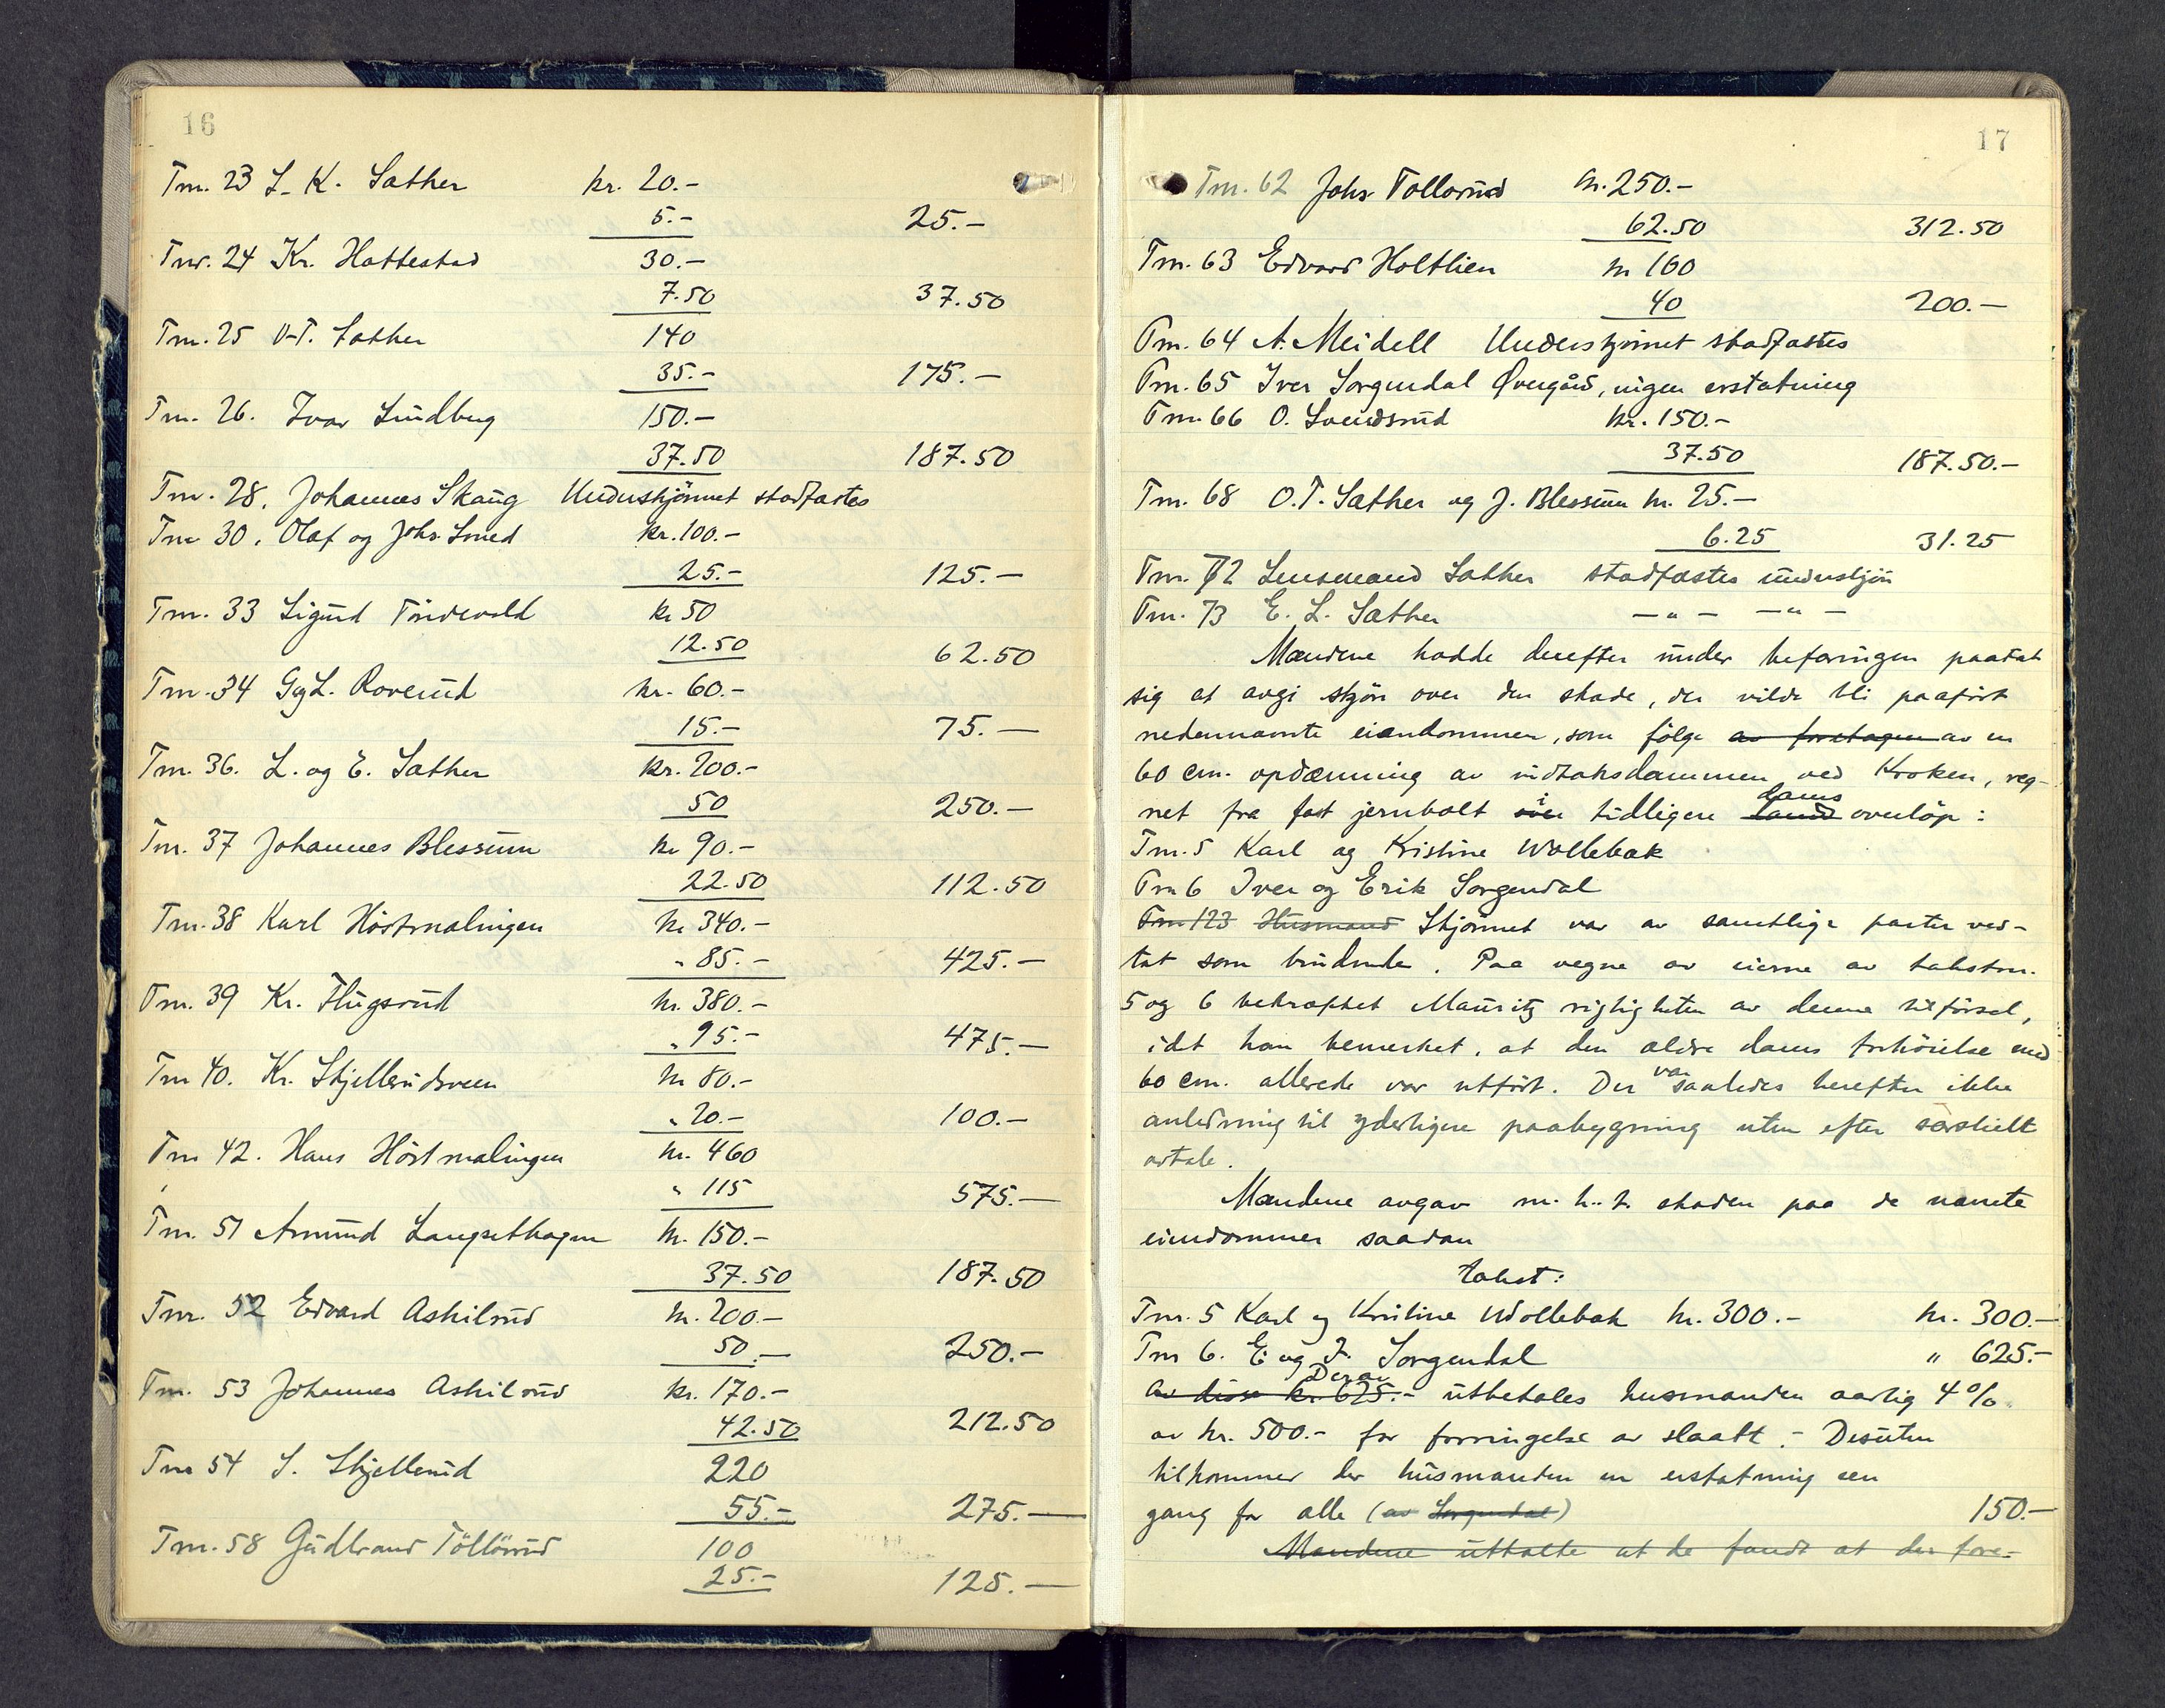 16
Tm. 23 L. K. Sæther kr. 20.-
5.- 25.-
Tnr. 24 Kr. Hattestad 30.-
7.50 37.50
Tm. 25 O.T. Sæther 140
35.- 175.-
Tm. 26. Ivar Lindberg 150.-
37.50 187.50
Tm. 28. Johannes Skaug Underskjönnet stadfæstes
Tm 30. Olaf og Johs. Smed kr. 100.-
25.- 125.-
Tm. 33 Sigurd Töndevold kr 50
12.50 62.50
Tm. 34 G. L. Roverud kr. 60.-
15.- 75.-
Tm. 36. L. og E. Sæther kr. 200.-
50 250.-
Tm. 37 Johannes Blessum kr 90.-
22.50 112.50
Tm. 38 Karl Höstmælingen kr 340.-
" 85.- 425.-
Tm. 39 Kr. Flugsrud kr. 380.-
" 95.- 475.-
Tm 40. Kr. Skjellerudsveen kr 80.-
" 20.- 100.-
Tm 42. Hans Höstmælingen kr. 460
" 115 575.-
Tm. 51 Amund Langsethagen kr. 150.-
37.50 187.50
Tnr. 52 Edvard Askilsrud kr. 200.-
50.- 250.-
Tm. 53 Johannes Askilsrud kr. 170.-
42.50 212.50
Tm 54 S. Skjellerud 220
55.- 275.-
Tm. 58 Gudbrand Töllörud 100
25.- 125.-
17
Tm. 62 Johs Tollorud kr. 250.-
62.50 312.50
Tm. 63 Edvard Holtlien kr 160
40 200.-
Tm. 64 A. Meidell Underskjönnet stadfæstes
Tm. 65 Iver Sorgendal Øvergård, ingen erstatning
Tm. 66 O. Svendsrud kr. 150.-
37.50 187.50.-
Tm. 68 O.T. Sæther og J. Blessum kr. 25.-
6.25 31.25
Tm. 72 Lensmand Sæther stadfæstes underskjön
Tm. 73 E. L. Sæther -"- -"-
Mændene hadde derefter under befaringen paatat
sig at avgi skjön over den skade, der vilde bli paafört
nedennævnte eiendommer, som fölge av foretagen av en
60 cm. opdæmning av indtaksdammen ved Kroken, reg-
net fra fast jernbolt i tidligere dams overlöp:
Tm. 5 Karl og Kristine Wollebæk
Tm 6 Iver og Erik Sorgendal
Tm 123 Husmand Skjönnet var av samtlige parter ved-
tat som bindende. Paa vegne av eierne av takstnr.
5 og 6 bekræftet Mauritz rigtigheten av denne tilförsel,
idet han bemerket, at den ældre dams forhöielse med
60 cm. allerede var utfört. Der var saaledes herefter ikke
anledning til yderligere paabygning uten efter særskilt
avtale.
Mændene avgav m. h. t. skaden paa de nævnte
eiendommer saadan
takst:
Tm. 5 Karl og Kristine Wollebæk kr. 300.- kr. 300.-
Tm 6. E. og I. Sorgendal " 625.-
Av disse kr. 625.- Derav utbetales husmanden aarlig 4%
av kr. 500.- for forringelse av slaatt.- Desuten
tilkommer der husmanden en erstatning een
gang for alle (av Sorgendal) 150.-
Mændene uttalte at de fandt at der fore-